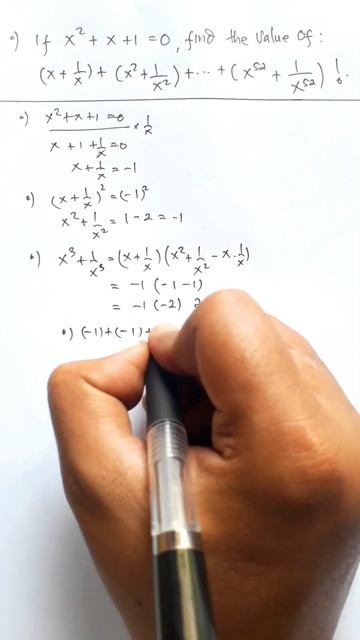 •) If x² + x + 1 = 0, find the value of :
(x + 1/x) + (x² + 1/x²) + ... + (x⁵² + 1/x⁵²) !
•) x² + x + 1 = 0 × 1/x
x + 1 + 1/x = 0
x + 1/x = -1
•) (x + 1/x)² = (-1)²
x² + 1/x² = 1 - 2 = -1
•) x³ + 1/x³ = (x + 1/x)(x² + 1/x² - x · 1/x)
= -1 (-1 - 1)
= -1 (-2) 2
•) (-1) + (-1) +